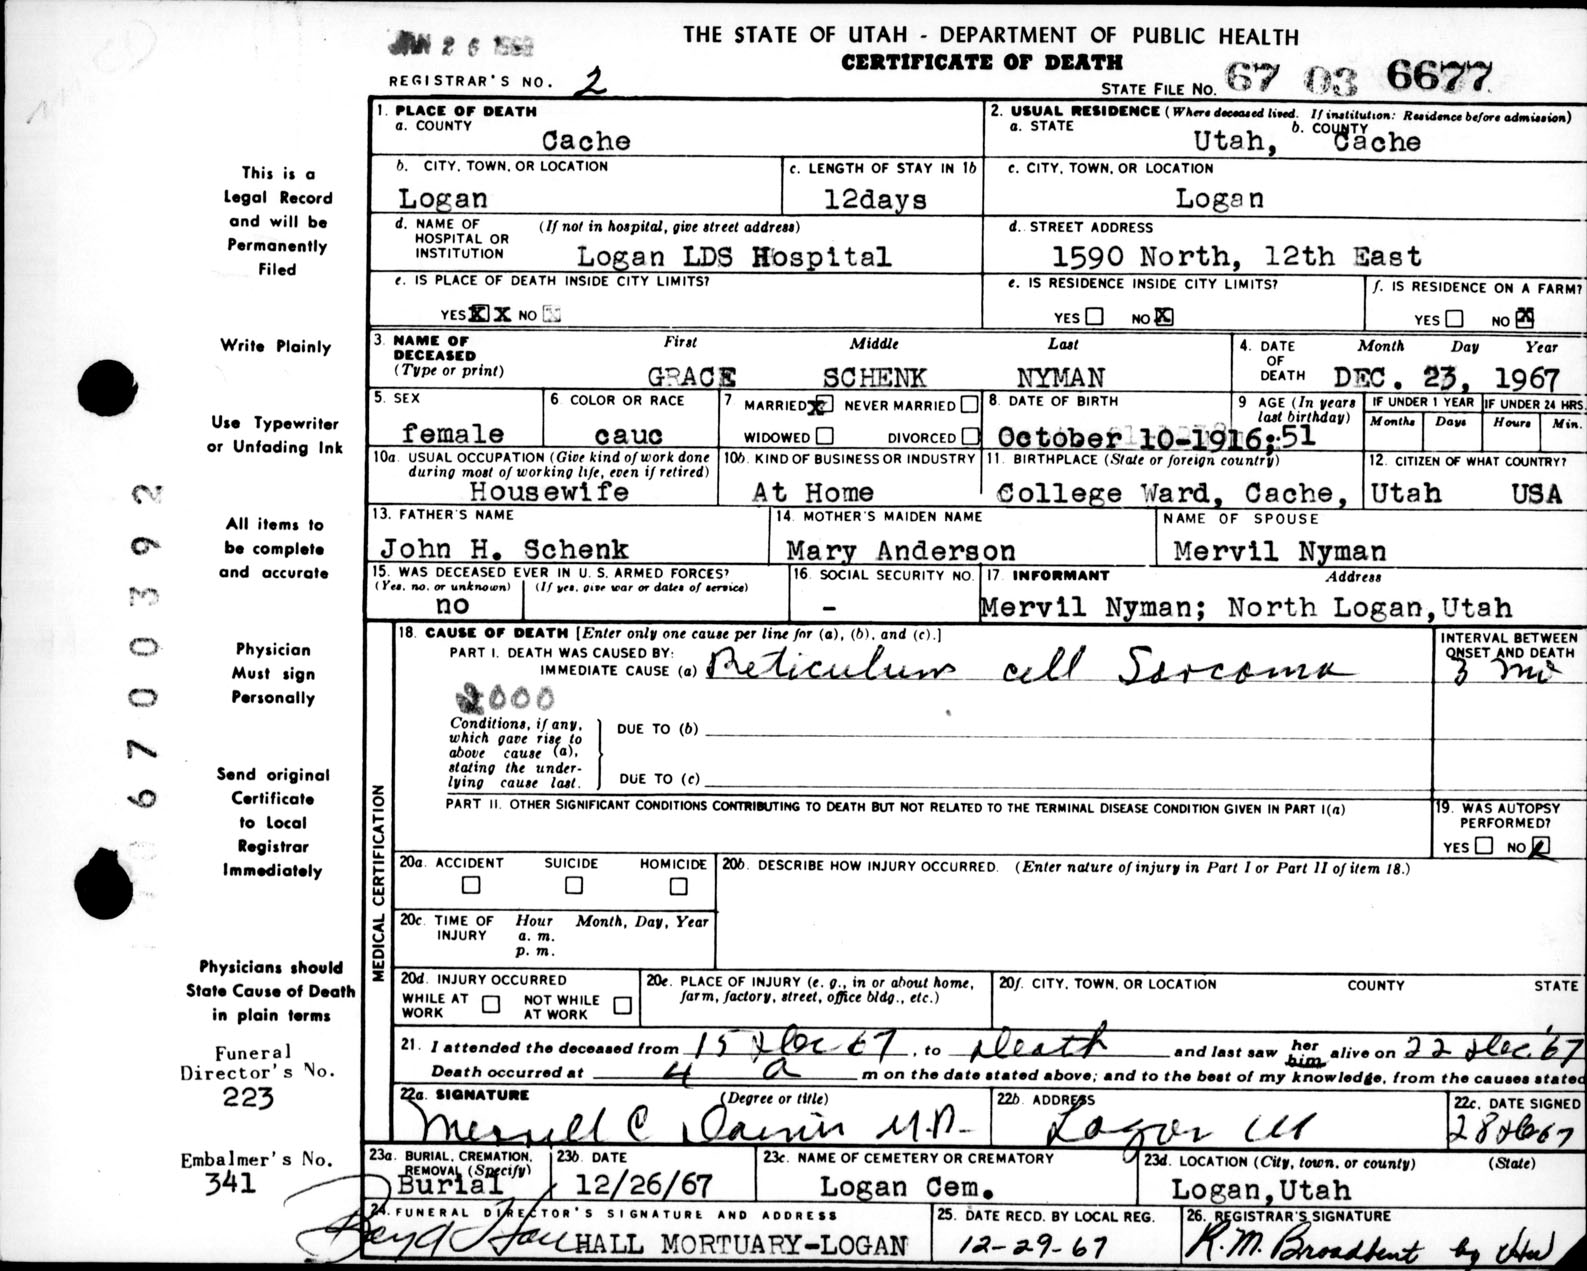 JAN 26 1968
THE STATE OF UTAH - DEPARTMENT OF PUBLIC HEALTH
CERTIFICATE OF DEATH
REGISTRAR'S NO. 2
STATE FILE NO. 67 03 6677
1. PLACE OF DEATH
a. COUNTY
Cache
2. USUAL RESIDENCE (Where deceased lived. If institution: Residence before admission)
a. STATE b. COUNTY
Utah, Cache
b. CITY, TOWN, OR LOCATION
Logan
c. LENGTH OF STAY IN 1b
12days
c. CITY, TOWN, OR LOCATION
Logan
d. NAME OF HOSPITAL OR INSTITUTION (If not in hospital, give street address)
Logan LDS Hospital
d. STREET ADDRESS
1590 North, 12th East
e. IS PLACE OF DEATH INSIDE CITY LIMITS?
YES X X NO
e. IS RESIDENCE INSIDE CITY LIMITS?
YES NO X
f. IS RESIDENCE ON A FARM?
YES NO X
3. NAME OF DECEASED (Type or print)
First Middle Last
GRACE SCHENK NYMAN
4. DATE OF DEATH
Month Day Year
DEC. 23, 1967
5. SEX
female
6. COLOR OR RACE
cauc
7 MARRIED X NEVER MARRIED
WIDOWED DIVORCED
8. DATE OF BIRTH
October 10-1916;
9 AGE (In years last birthday)
51
IF UNDER 1 YEAR
Months Days
IF UNDER 24 HRS.
Hours Min.
10a. USUAL OCCUPATION (Give kind of work done during most of working life, even if retired)
Housewife
10b. KIND OF BUSINESS OR INDUSTRY
At Home
11. BIRTHPLACE (State or foreign country)
College Ward, Cache, Utah
12. CITIZEN OF WHAT COUNTRY?
USA
13. FATHER'S NAME
John H. Schenk
14. MOTHER'S MAIDEN NAME
Mary Anderson
NAME OF SPOUSE
Mervil Nyman
15. WAS DECEASED EVER IN U. S. ARMED FORCES?
(Yes, no, or unknown) (If yes, give war or dates of service)
no
16. SOCIAL SECURITY NO.
-
17. INFORMANT Address
Mervil Nyman; North Logan, Utah
MEDICAL CERTIFICATION
18. CAUSE OF DEATH [Enter only one cause per line for (a), (b), and (c).]
PART I. DEATH WAS CAUSED BY:
IMMEDIATE CAUSE (a) Reticulum cell Sarcoma
INTERVAL BETWEEN ONSET AND DEATH
3 mo
2000
Conditions, if any, which gave rise to above cause (a), stating the underlying cause last.
DUE TO (b)
DUE TO (c)
PART II. OTHER SIGNIFICANT CONDITIONS CONTRIBUTING TO DEATH BUT NOT RELATED TO THE TERMINAL DISEASE CONDITION GIVEN IN PART I(a)
19. WAS AUTOPSY PERFORMED?
YES NO
20a. ACCIDENT SUICIDE HOMICIDE
20b. DESCRIBE HOW INJURY OCCURRED. (Enter nature of injury in Part I or Part II of item 18.)
20c. TIME OF INJURY Hour Month, Day, Year
a. m.
p. m.
20d. INJURY OCCURRED
WHILE AT WORK NOT WHILE AT WORK
20e. PLACE OF INJURY (e. g., in or about home, farm, factory, street, office bldg., etc.)
20f. CITY, TOWN, OR LOCATION COUNTY STATE
21. I attended the deceased from 15 Dec 67, to Death and last saw her him alive on 22 Dec '67
Death occurred at 4 a m on the date stated above; and to the best of my knowledge, from the causes stated
22a. SIGNATURE (Degree or title)
Merrill C M.D.
22b. ADDRESS
Logan Ut
22c. DATE SIGNED
28 Dec 67
23a. BURIAL, CREMATION, REMOVAL (Specify)
Burial
23b. DATE
12/26/67
23c. NAME OF CEMETERY OR CREMATORY
Logan Cem.
23d. LOCATION (City, town, or county) (State)
Logan, Utah
24. FUNERAL DIRECTOR'S SIGNATURE AND ADDRESS
HALL MORTUARY-LOGAN
25. DATE RECD. BY LOCAL REG.
12-29-67
26. REGISTRAR'S SIGNATURE
R.M. Broadbent by
This is a
Legal Record
and will be
Permanently
Filed
Write Plainly
Use Typewriter
or Unfading Ink
All items to
be complete
and accurate
Physician
Must sign
Personally
Send original
Certificate
to Local
Registrar
Immediately
Physicians should
State Cause of Death
in plain terms
Funeral
Director's No.
223
Embalmer's No.
341
06700392